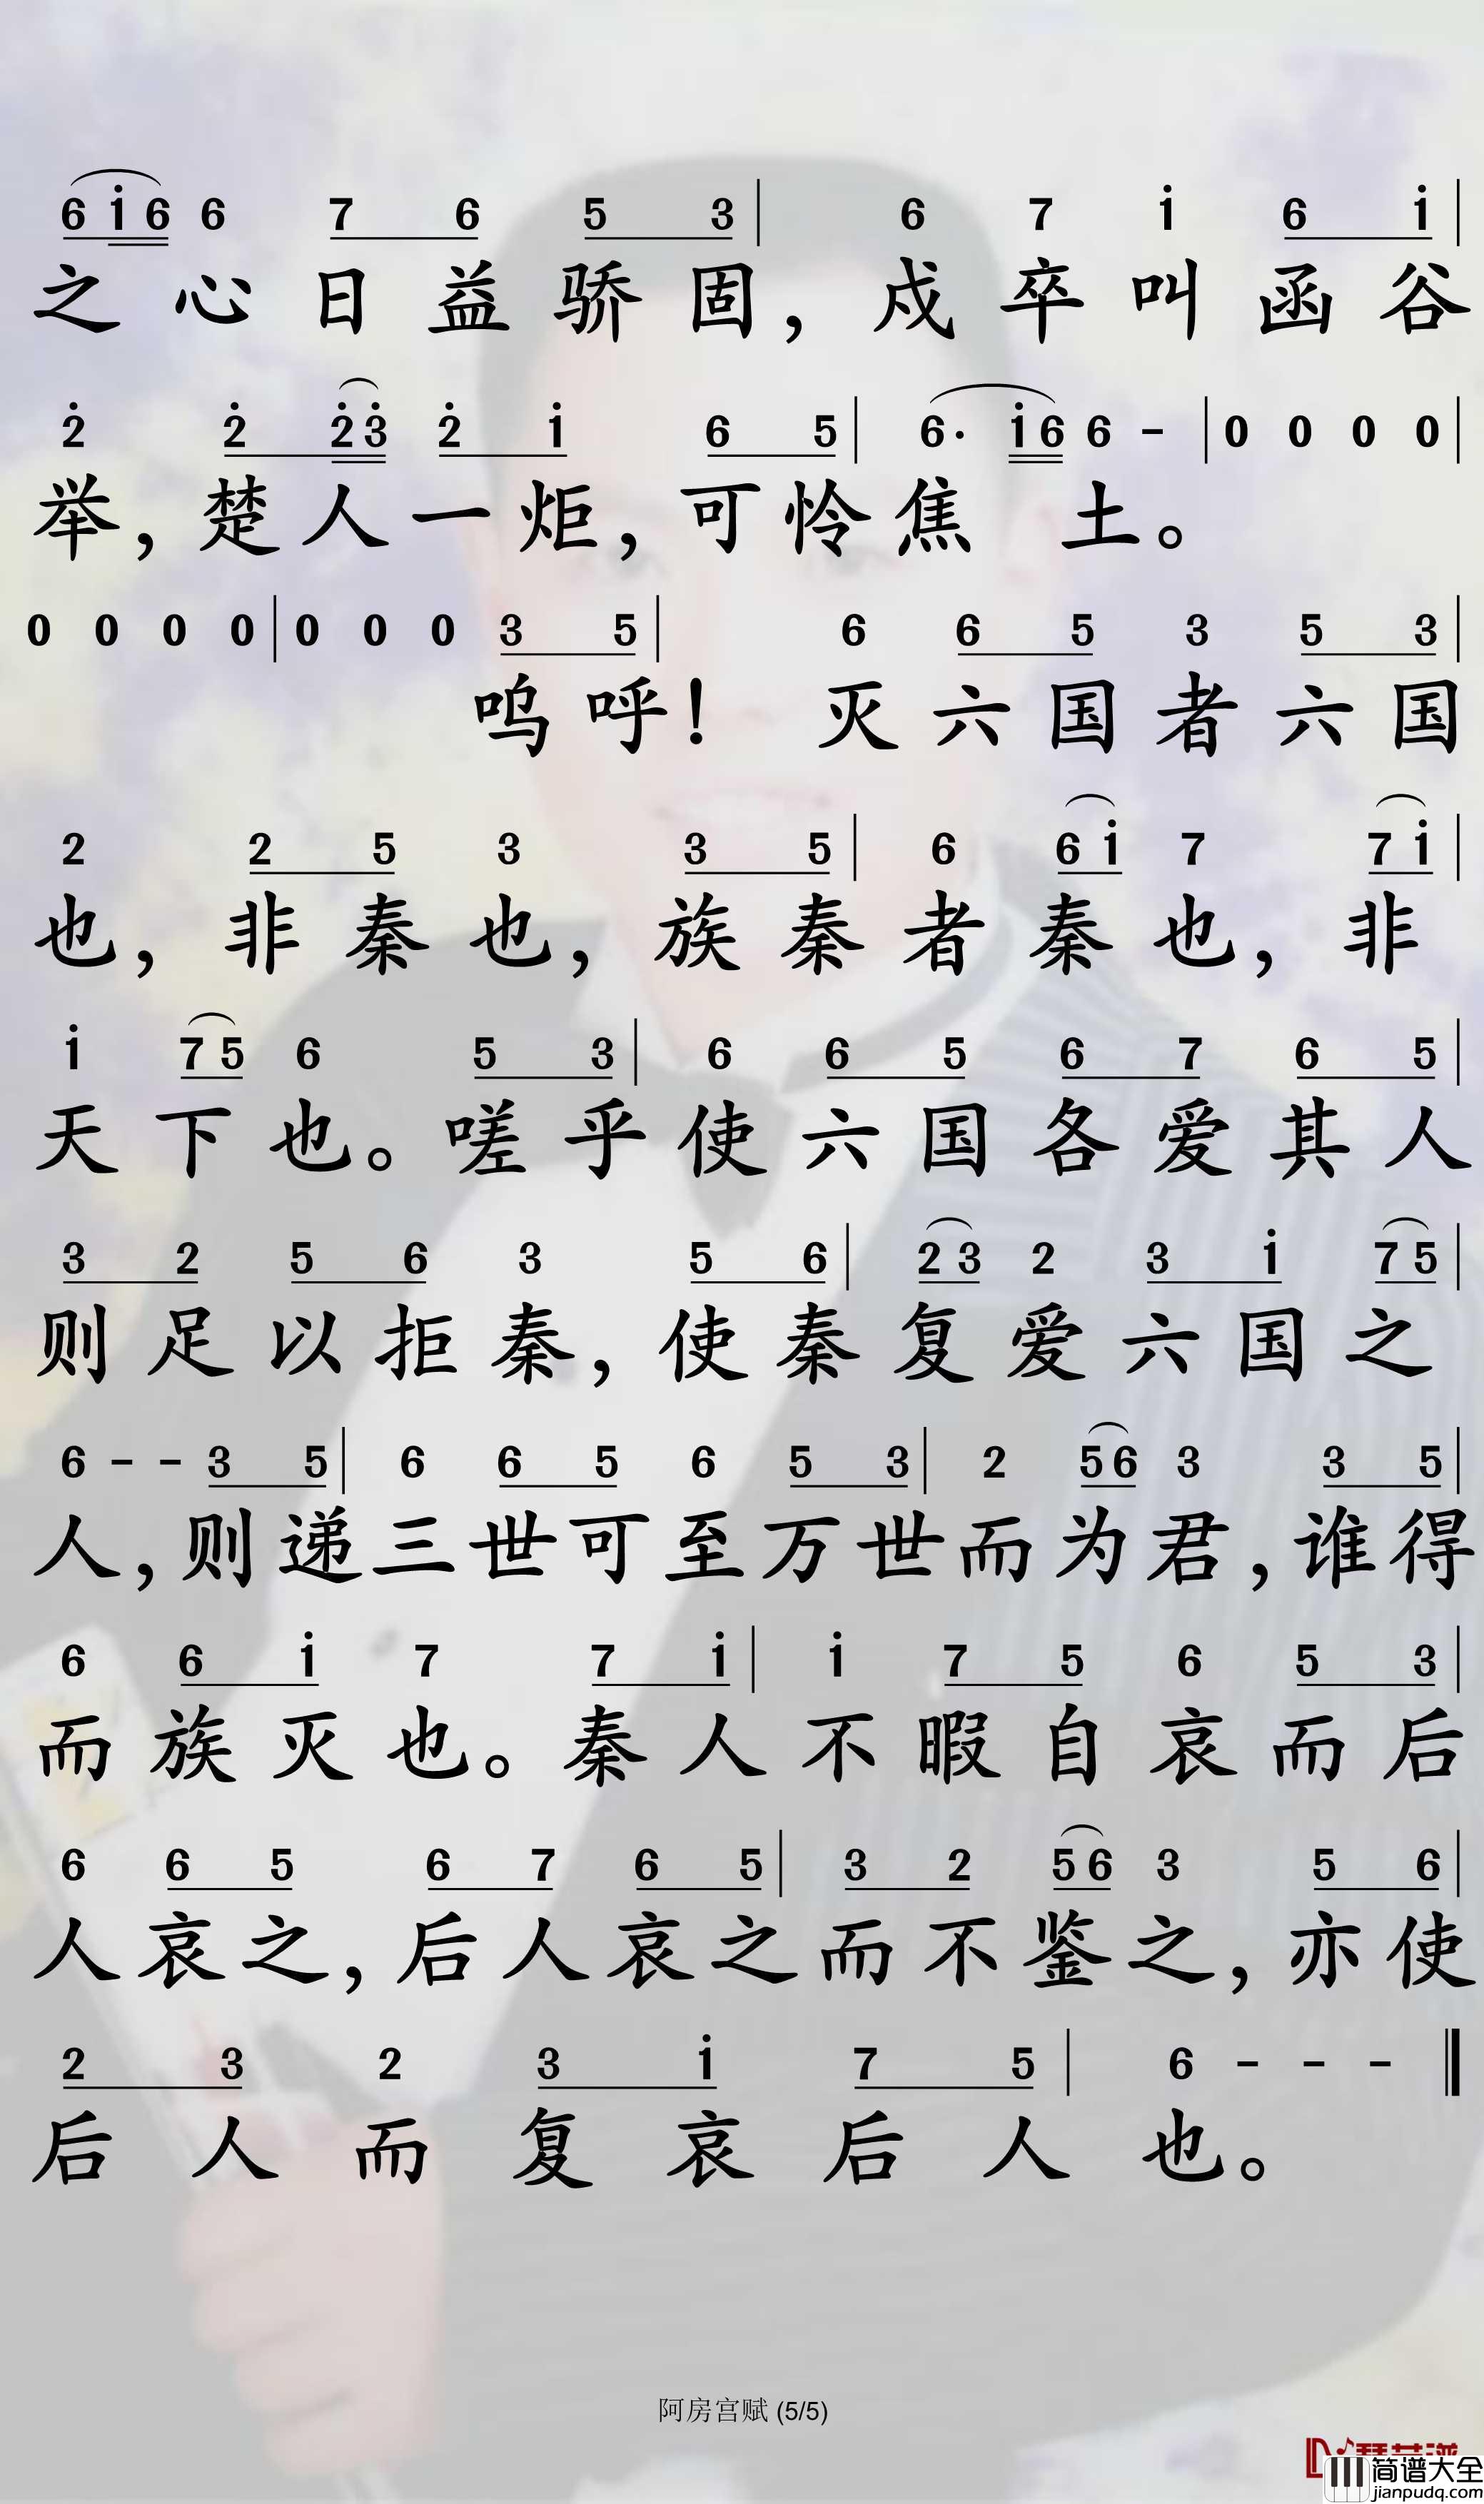 6 i 6 6 7 6 5 3 | 6 7 i 6 i |
之心日益骄固，戍卒叫函谷
2̇ 2̇ 2̇ 3̇ 2̇ i 6 5 | 6· i 6 6 - | 0 0 0 0 |
举，楚人一炬，可怜焦土。
0 0 0 0 | 0 0 0 3 5 | 6 6 5 3 5 3 |
呜呼！灭六国者六国
2 2 5 3 3 5 | 6 6 i 7 7 i |
也，非秦也，族秦者秦也，非
i 7 5 6 5 3 | 6 6 5 6 7 6 5 |
天下也。嗟乎使六国各爱其人
3 2 5 6 3 5 6 | 2 3 2 3 i 7 5 |
则足以拒秦，使秦复爱六国之
6 - - 3 5 | 6 6 5 6 5 3 | 2 5 6 3 3 5 |
人，则递三世可至万世而为君，谁得
6 6 i 7 7 i | i 7 5 6 5 3 |
而族灭也。秦人不暇自哀而后
6 6 5 6 7 6 5 | 3 2 5 6 3 5 6 |
人哀之，后人哀之而不鉴之，亦使
2 3 2 3 i 7 5 | 6 - - -
后人而复哀后人也。
阿房宫赋 (5/5)
简谱大全
jianpudq.com